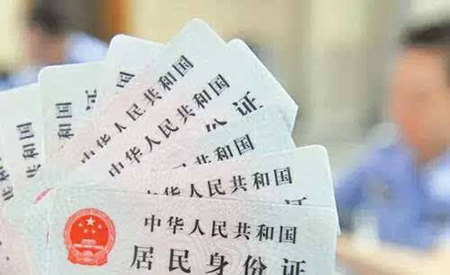 中华人民共和国
中华人民共和国
份证
中华人民共和国
中华人民共和国
份证
中华人民共和国
居民身份证